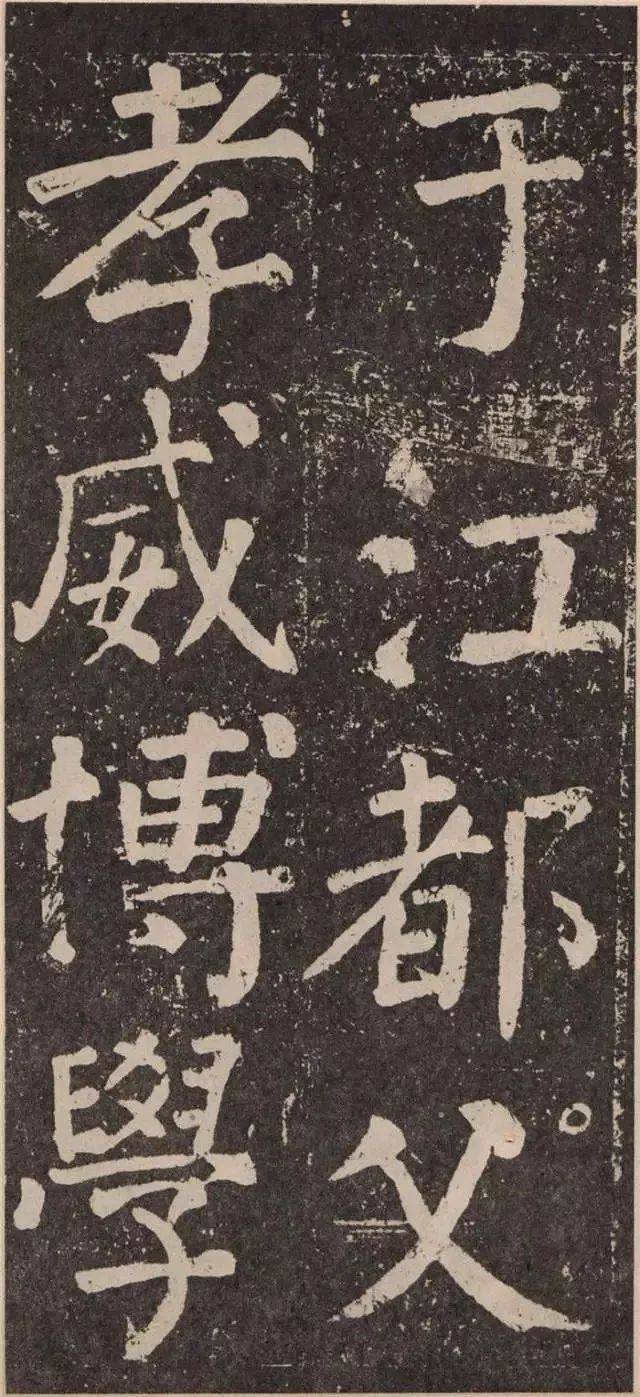 于江都父
孝威博學